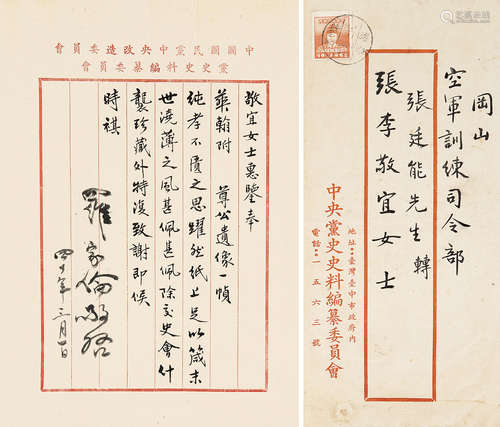 中國國民黨中央改造委員會
黨史史料編纂委員會
敬宜女士惠鑒奉
華翰附 尊公遺像一幀
純孝不匱之思躍然紙上足以箴末
世澆薄之風甚佩甚佩除交史會什
襲珍藏外特復致謝即候
時祺
羅家倫敬啓
四十年三月一日
岡山
空軍訓練司令部
張廷能先生轉
張李敬宜女士
中央黨史史料編纂委員會
地址：臺灣臺中市政府內
電話：一五六三號